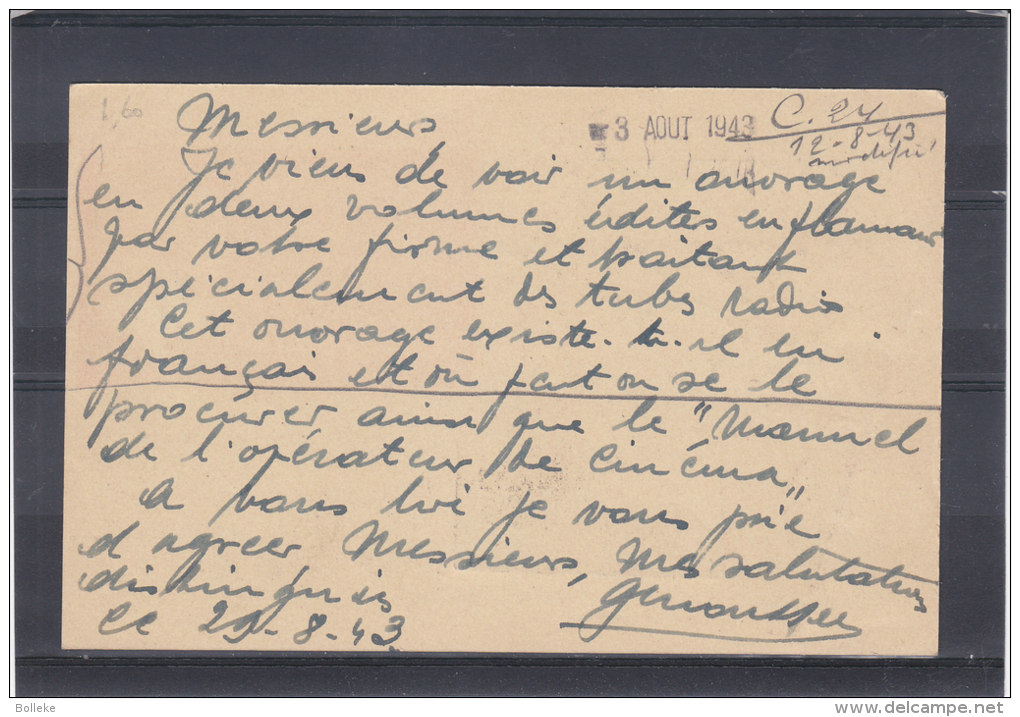 1,60
Messieurs
3 AOUT 1943
C. 24
12-8-43
modifié
Je viens de voir un ouvrage
en deux volumes édités en flamand
par votre firme et traitant
spécialement des tubes radio
Cet ouvrage existe-t-il en
français et où peut on se le
procurer ainsi que le "Manuel
de l'opérateur de Cinéma"
A vous lire je vous prie
d'agréer Messieurs, mes salutations
distinguées
Ce 29-8-43
Bolleke
delcampe.net